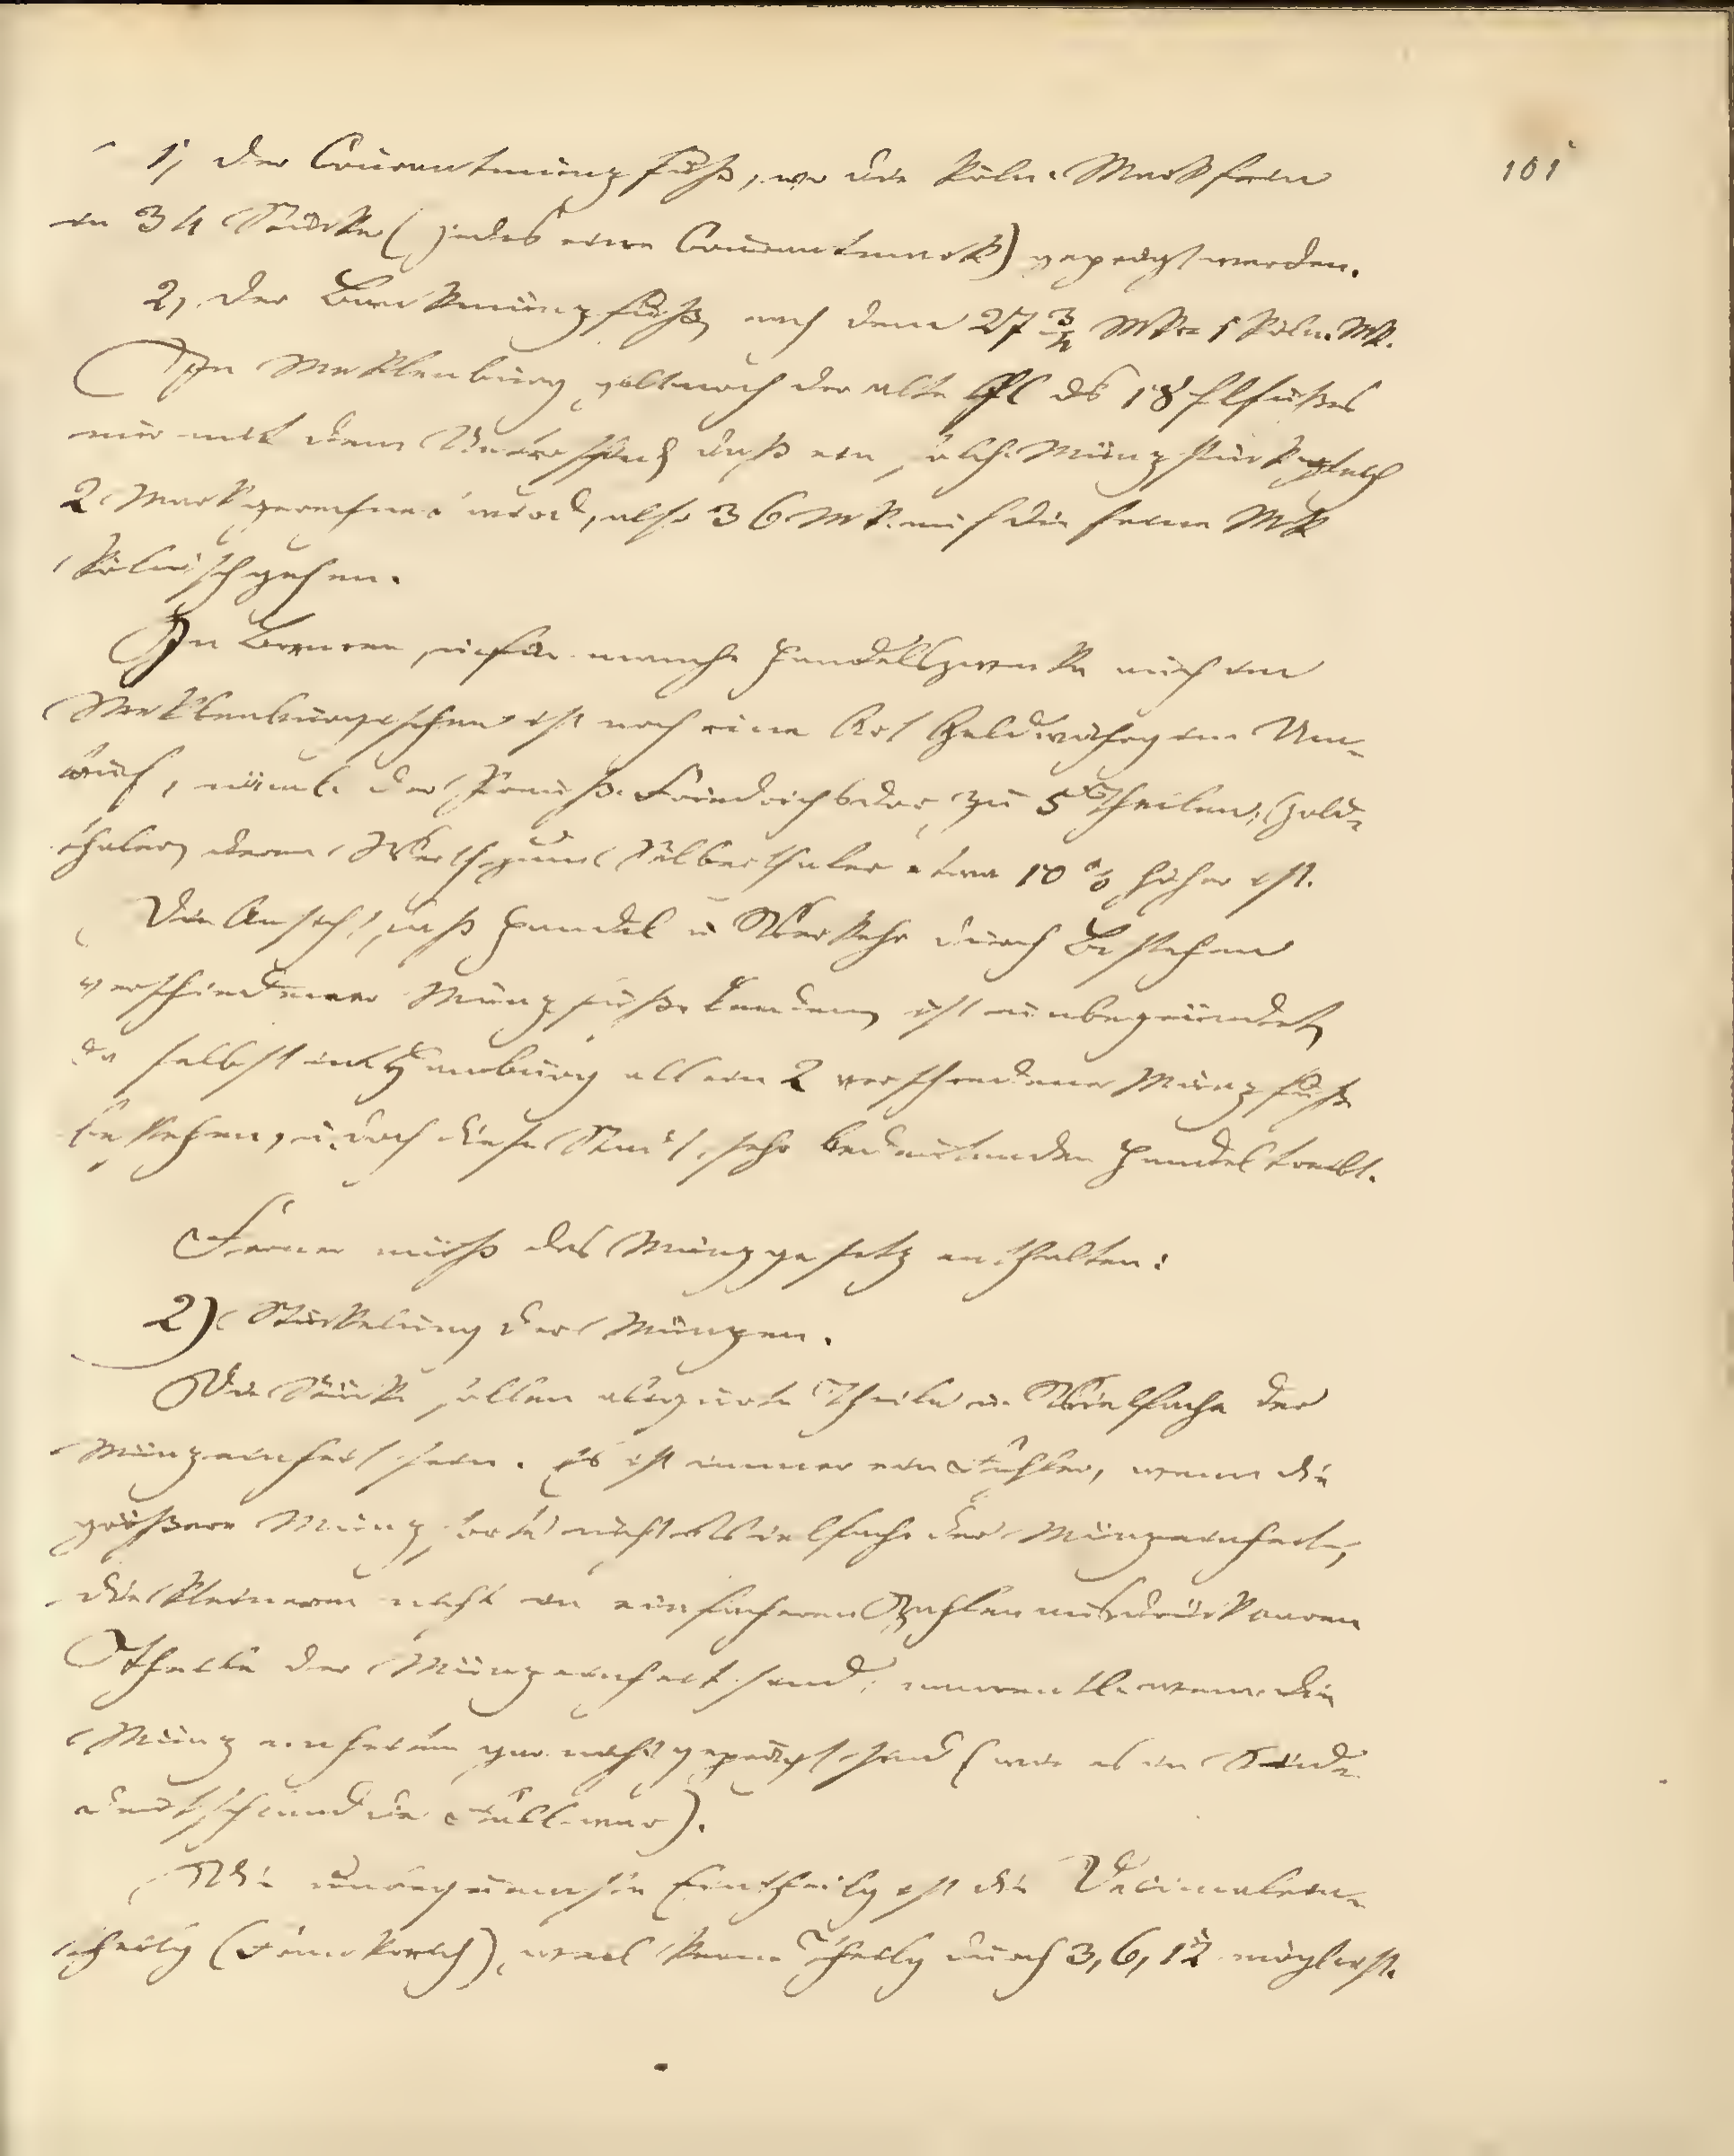 101
1, der Courantmünzfuß, wo die köln. Mark fein
in 34 Stücke (jedes eine Courantmark) geprägt werden.
2, der Bankmünzfuß, nach dem 27 3/4 Mk = 1 köln. Mk.
In Meklenburg gilt noch der alte Fl des 18 flfußes
nur mit dem Unterschied, daß ein solch. Münzstück gleich
2 Mark gerechnet wird, also 36 Mk. auf die feine Mk
kölnisch gehen.
In Bremen, u. für manche Handelszwecke auch im
Meklenburgischen ist noch eine Art Goldwährg im Um-
lauf, nämlich der Preuß. Friedrichsdor, zu 5 Theilen, Gold-
thaler, deren Werth zum Silberthaler etwa 10 % höher ist.
Die Ansicht, daß Handel u Verkehr durch Bestehen
verschiedener Münzfüße leiden, ist unbegründet,
da selbst in Hamburg allein 2 verschiedene Münzfüße
bestehen, u. doch diese Stadt sehr bedeutenden Handel treibt.
Ferner muß das Münzgesetz enthalten:
2) Stückelung der Münzen.
Die Stücke sollen aliquote Theile u. Vielfache der
Münzeinheit sein. Es ist immer ein Fehler, wenn die
größere Münzsorte nicht Vielfache der Münzeinheit,
die kleineren nicht in einfacheren Zahlen ausdrückbaren
Theile der Münzeinheit sind; namentl. wenn die
Münzeinheiten gar nicht geprägt sind (wie es in Süd-
deutschland der Fall war).
Die unbequemste Eintheilg ist die Decimalein-
theilg (Frankreich), weil keine Theilg durch 3, 6, 12 möglich ist.